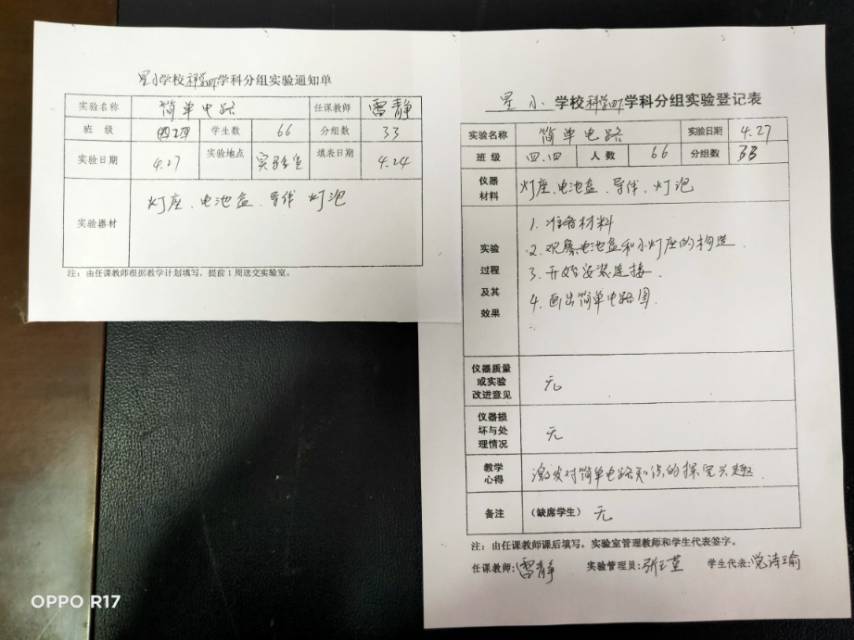 星小学校科学四学科分组实验通知单
实验名称 简单电路 任课教师 雷静
班 级 四.四 学生数 66 分组数 33
实验日期 4.27 实验地点 实验室 填表日期 4.24
实验器材 灯座、电池盒、导线 灯泡
注：由任课教师根据教学计划填写，提前1周送交实验室。
星小 学校科学四学科分组实验登记表
实验名称 简单电路 实验日期 4.27
班 级 四.四 人 数 66 分组数 33
仪器材料 灯座、电池盒、导线、灯泡
实验过程及其效果
1. 准备材料
2. 观察电池盒和小灯座的构造.
3. 开始安装连接.
4. 画出简单电路图.
仪器质量或实验改进意见 无
仪器损坏与处理情况 无
教学心得 激发对简单电路知识的探究兴趣.
备注 (缺席学生) 无
注：由任课教师课后填写，实验室管理教师和学生代表签字。
任课教师:雷静 实验管理员: 学生代表:
OPPO R17